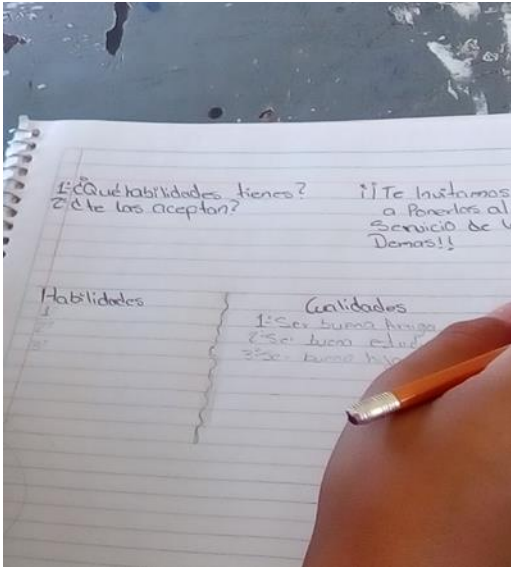 1-¿Qué habilidades tienes?
2-¿te las aceptan?
¡¡Te Invitamos
a Ponerlos al
Servicio de
Demas!!
Habilidades
1-
2-
3-
Cualidades
1-Ser buena Amiga
2-Ser buena
3-Ser buena hija